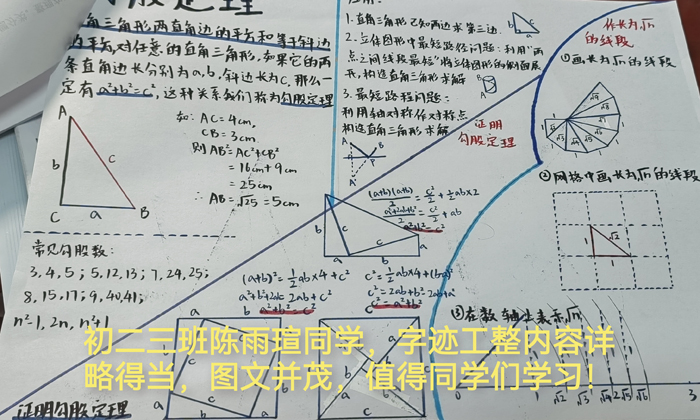 勾股定理
直角三角形两直角边的平方和等于斜边
的平方,对任意的直角三角形,如果它的两
条直角边长分别为a,b,斜边长为c,那么一
定有a²+b²=c²,这种关系我们称为勾股定理
A
b
c
C
a
B
如: AC=4cm,
CB=3cm
则AB²=AC²+CB²
=16cm+9cm
=25cm
∴AB=√25=5cm
常见勾股数:
3,4,5;5,12,13;7,24,25;
8,15,17;9,40,41;
n²-1,2n,n²+1
1.直角三角形已知两边求第三边.
2.立体图形中最短路径问题:利用"两
点之间线段最短"将立体图形的侧面展
开,构造直角三角形求解
3.最短路程问题:
利用轴对称作对称点
构造直角三角形求解
证明
勾股定理
(a+b)(a+b)/2=c²/2+½ab×2
a²+2ab+b²/2=c²/2+ab
a²+b²=c²
(a+b)²=½ab×4+c²
a²+b²+2ab=2ab+c²
a²+b²=c²
c²=½ab×4+(b-a)²
c²=2ab+b²-2ab+a²
c²=a²+b²
作长为√n
的线段
①画长为√n的线段
②网格中画长为√n的线段
1
√2
1
③在数轴上表示√n
√2 √3 √4 2 √5 √6 3
证明勾股定理
初二三班陈雨瑄同学，字迹工整内容详
略得当，图文并茂，值得同学们学习！